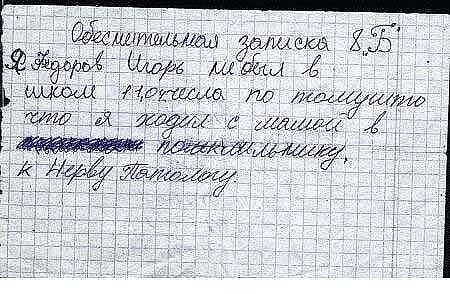 Обеснительная записка 8 „Б"
Я Федоров Игорь не был в
школ 11,04 числа по томушто
что я ходил с мамой в
к Нерву Патологу